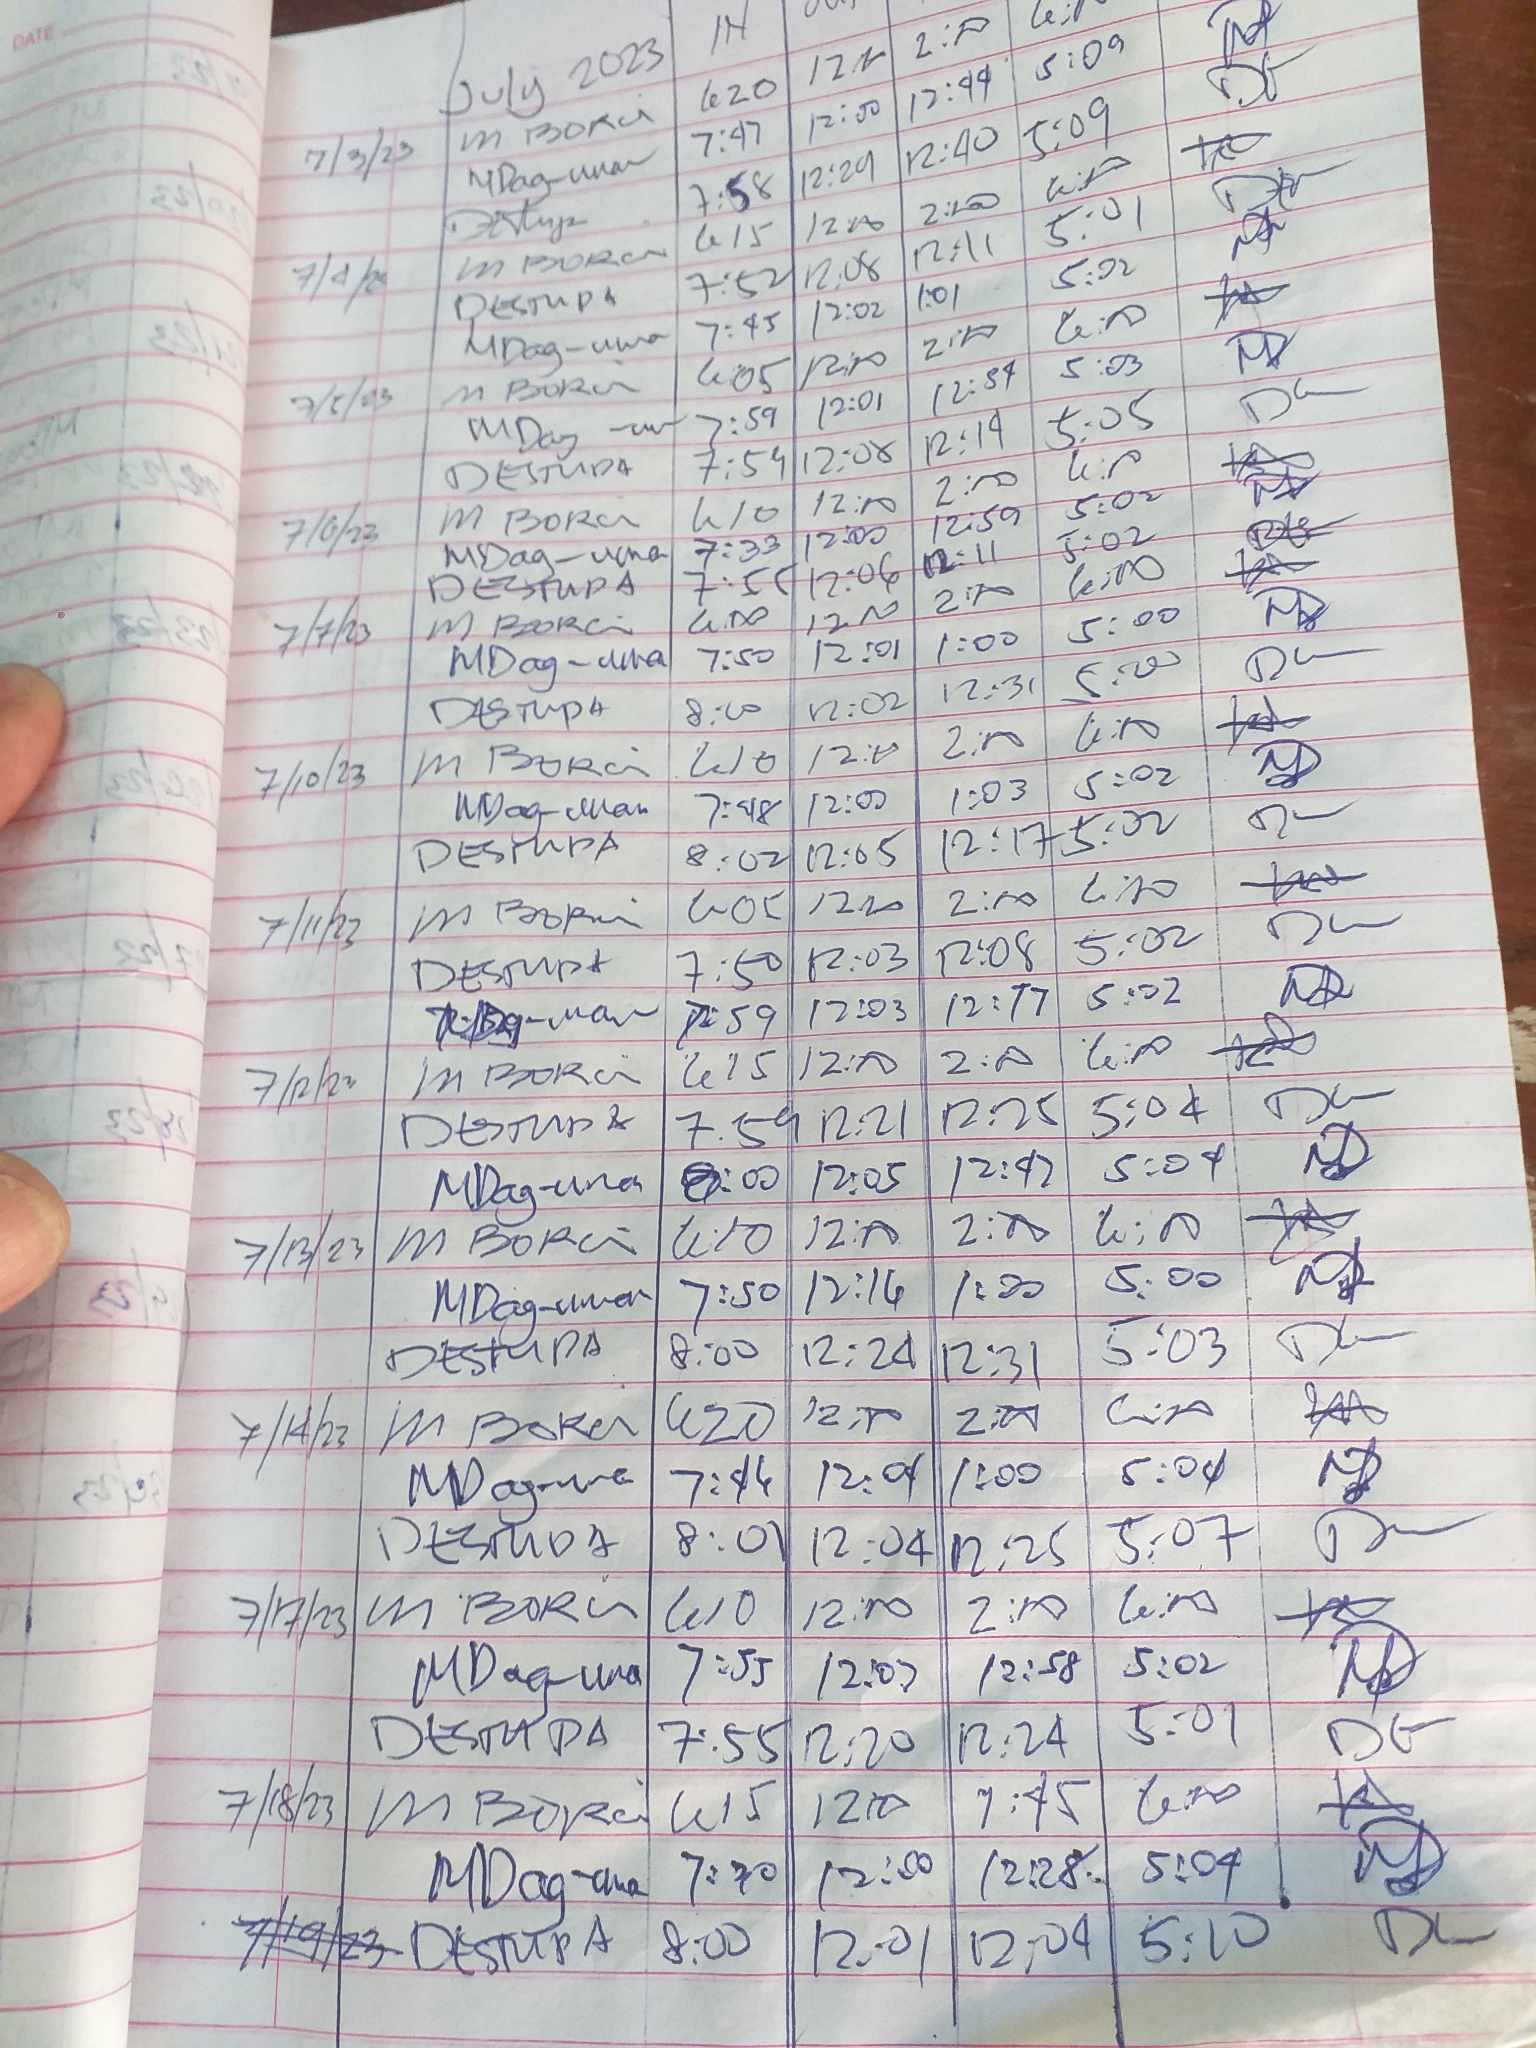 DATE
July 2023 IN
7/3/23 M BORCI 6:20 12:00 2:00 6:00
MDag-uman 7:47 12:00 12:44 5:09
7:58 12:29 12:40 5:09
7/4/23 M BORCI 6:15 12:00 2:00 6:00
DESTUPA 7:52 12:08 12:11 5:01
MDag-uma 7:45 12:02 1:01 5:02
7/5/23 M BORCI 6:05 12:00 2:00 6:00
MDag-um 7:59 12:01 12:54 5:03
DESTUPA 7:54 12:08 12:14 5:05
7/6/23 M BORCI 6:10 12:00 2:00 6:00
MDag-uma 7:33 12:00 12:59 5:02
DESTUPA 7:55 12:06 12:11 5:02
7/7/23 M BORCI 6:00 12:00 2:00 6:00
MDag-uma 7:50 12:01 1:00 5:00
DESTUPA 8:00 12:02 12:31 5:00
7/10/23 M BORCI 6:10 12:00 2:00 6:00
MDag-uman 7:48 12:00 1:03 5:02
DESTUPA 8:02 12:05 12:17 5:02
7/11/23 M BORCI 6:05 12:00 2:00 6:00
DESTUPA 7:50 12:03 12:08 5:02
MDag-uman 7:59 12:03 12:17 5:02
7/12/23 M BORCI 6:15 12:00 2:00 6:00
DESTUPA 7:59 12:21 12:25 5:04
MDag-uma 8:00 12:05 12:42 5:04
7/13/23 M BORCI 6:10 12:00 2:00 6:00
MDag-uman 7:50 12:16 1:00 5:00
DESTUPA 8:00 12:24 12:31 5:03
7/14/23 M BORCI 6:20 12:00 2:00 6:00
MDag-uma 7:46 12:04 1:00 5:04
DESTUPA 8:01 12:04 12:25 5:07
7/17/23 M BORCI 6:10 12:00 2:00 6:00
MDag-uma 7:55 12:03 12:58 5:02
DESTUPA 7:55 12:20 12:24 5:01
7/18/23 M BORCI 6:15 12:00 1:45 6:00
MDag-uma 7:30 12:00 12:28 5:04
7/19/23 DESTUPA 8:00 12:01 12:04 5:10